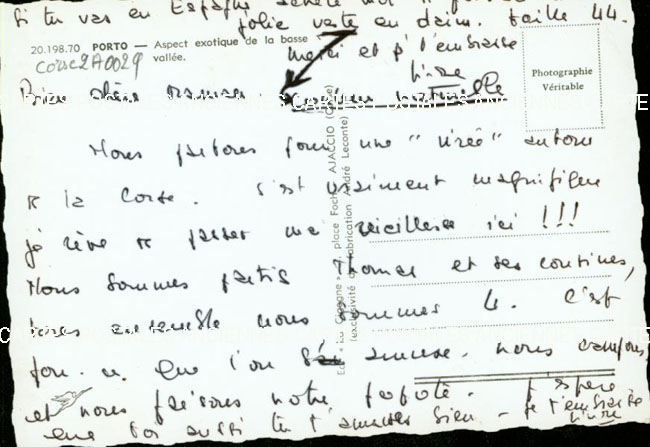 Si tu vas en Espagne achète moi "
jolie veste en daim. taille 44.
20.198.70 PORTO — Aspect exotique de la basse vallée.
Corse2A0029
merci et je t'embrasse
couleur naturelle
Photographie Véritable
Ma chère maman
Nous faisons une "virée" autour
de la Corse. C'est vraiment magnifique
j'ai rêvé de passer ma vieillesse ici !!!
Nous sommes partis Thomas et ses cousines,
tous ensemble nous sommes 4. C'est
fou ce que l'on s'amuse. nous campons
et nous faisons notre popote. J'espère
que toi aussi tu t'amuses bien - je t'embrasse
place Foch, AJACCIO (Corse)
(exclusivité de fabrication André Leconte)
CARTES POSTALES ANCIENNES